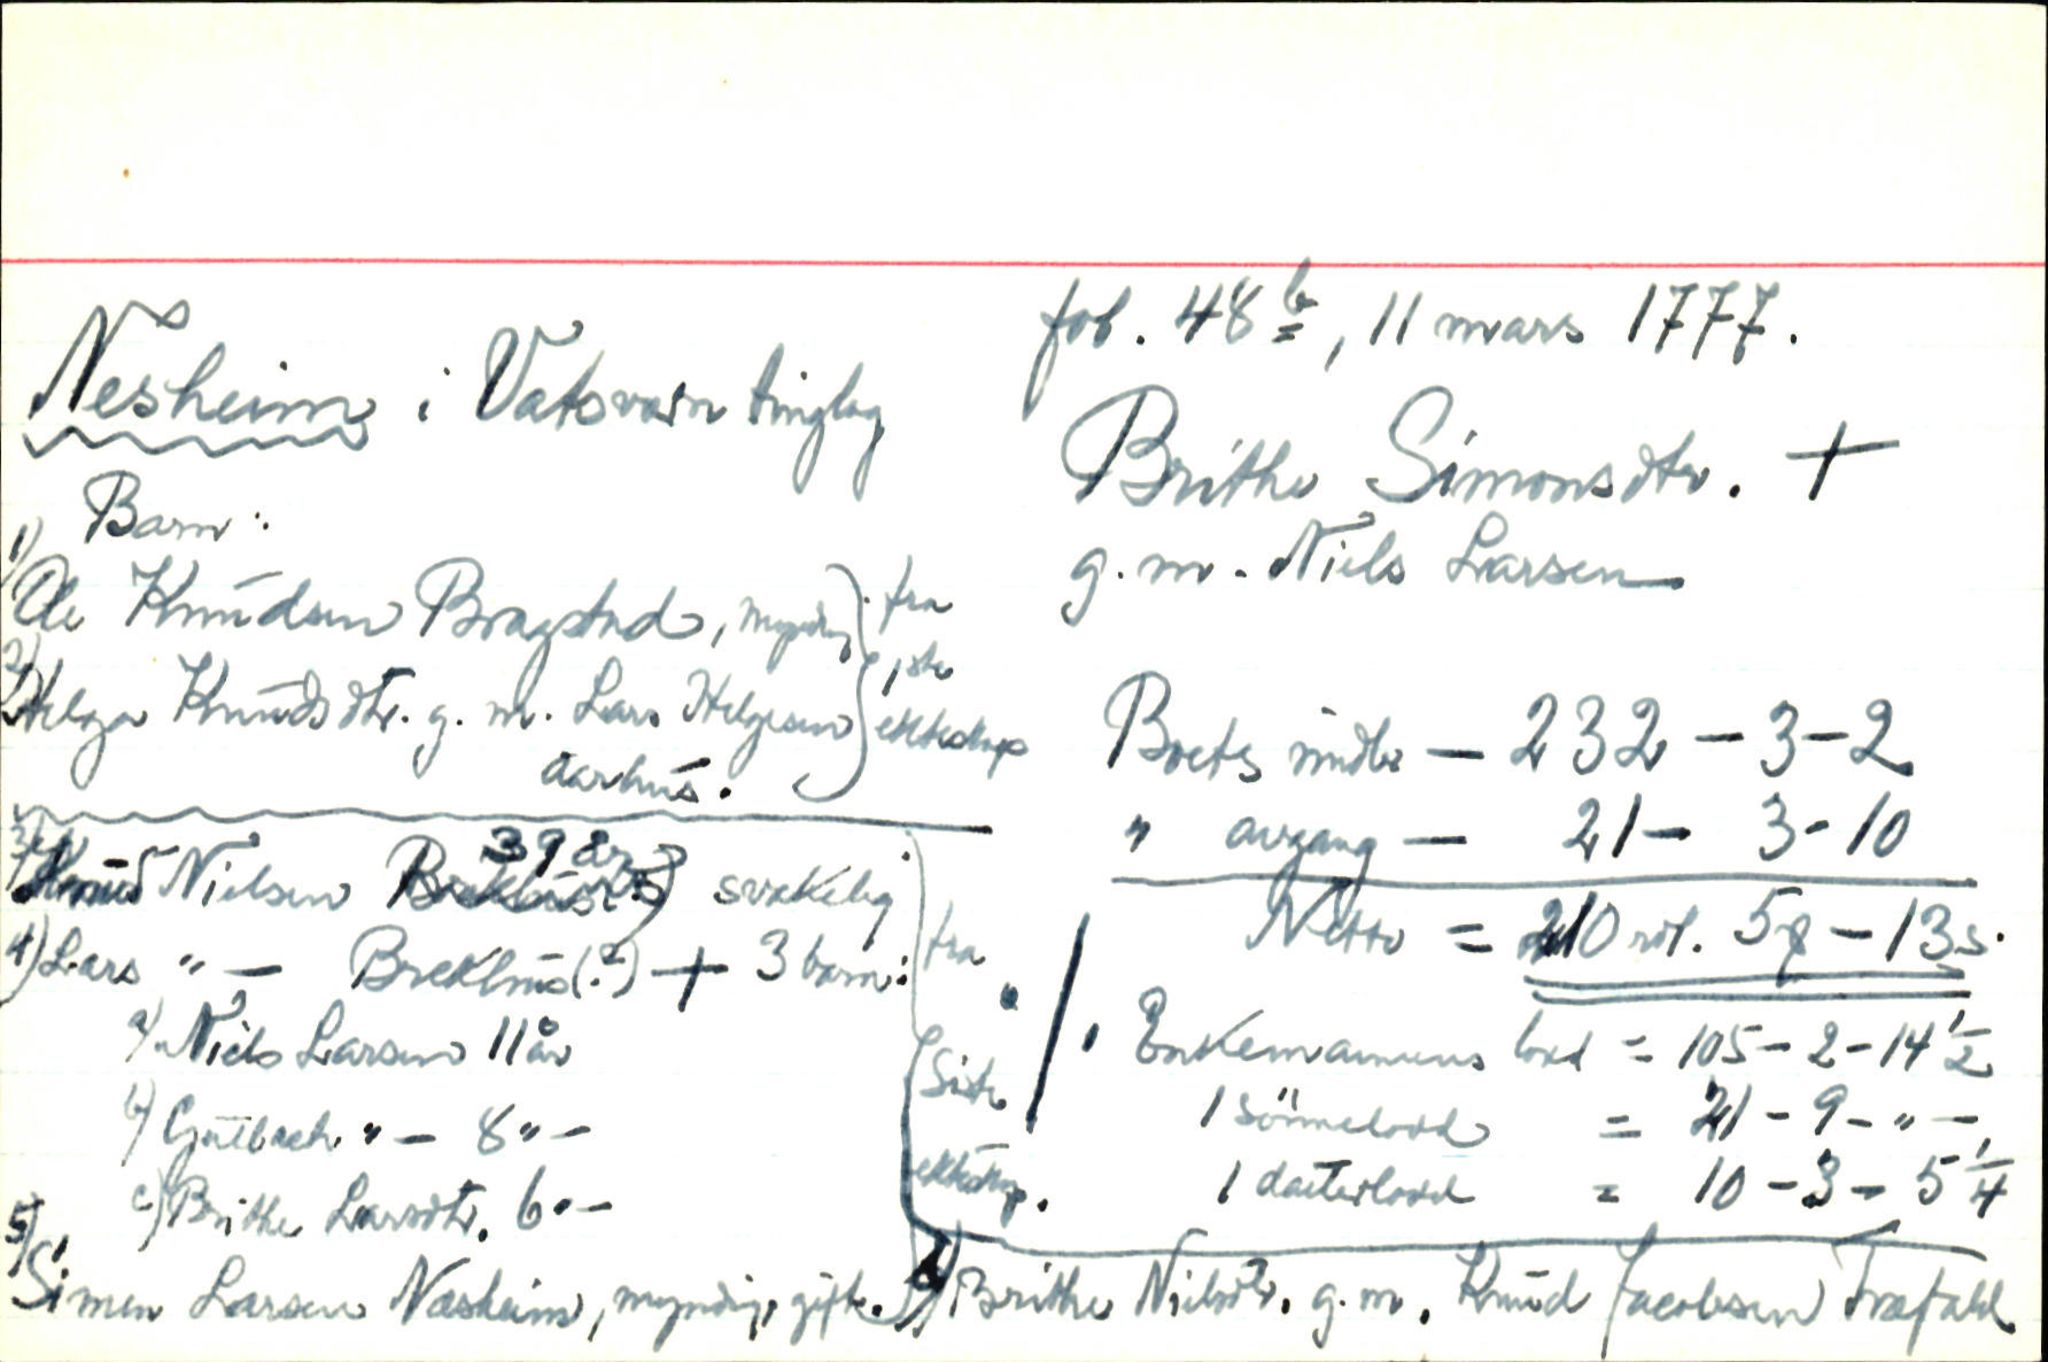 Nesheim i Vatsvatn tinglag
fol. 48 b, 11 mars 1777.
Brithe Simonsdtr. +
g. m. Niels Larsen
Barn:
1) Ole Knudsen Bragstad, myndig
2) Helga Knudsdtr. g. m. Lars Helgesen
Aarhus.
fra
1ste
ekteskap
Boets midler — 232 — 3 — 2
" avgang — 21 — 3 - 10
Netto = 210 rdl. 5 — 13 s.
Enkemannens lodd = 105 — 2 — 14 1/2
1 sönnelodd = 21 - 9 - " —
1 datterlodd = 10 — 3 — 5 1/4
3) Knud Nielsen 39 år svakelig
4) Lars " — Brekhus (?) + 3 barn:
a) Niels Larsen 11 år
b) " — 8 " —
c) Brithe Larsdtr. 6 " —
fra
siste
ekteskap.
5) Simen Larsen Næsheim, myndig, gift.
6) Brithe Nielsdtr. g. m. Knud Jacobsen Træfald